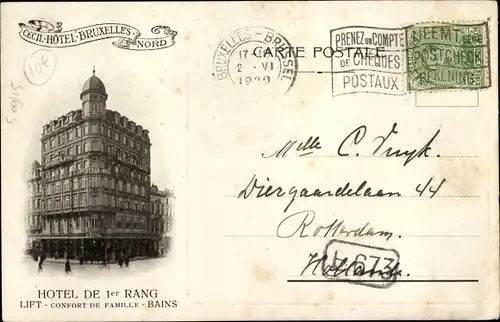 CECIL-HÔTEL-BRUXELLES
NORD
10€
CARTE POSTALE
BRUXELLES - BRUSSEL
17
2 - VI
1929
PRENEZ UN COMPTE
DE CHÈQUES
POSTAUX
NEEMT
POSTCHECK
REKENING
Melle C. Vuyk.
Diergaardelaan 44
Rotterdam.
Hollande.
673
HOTEL DE 1er RANG
LIFT - CONFORT DE FAMILLE - BAINS